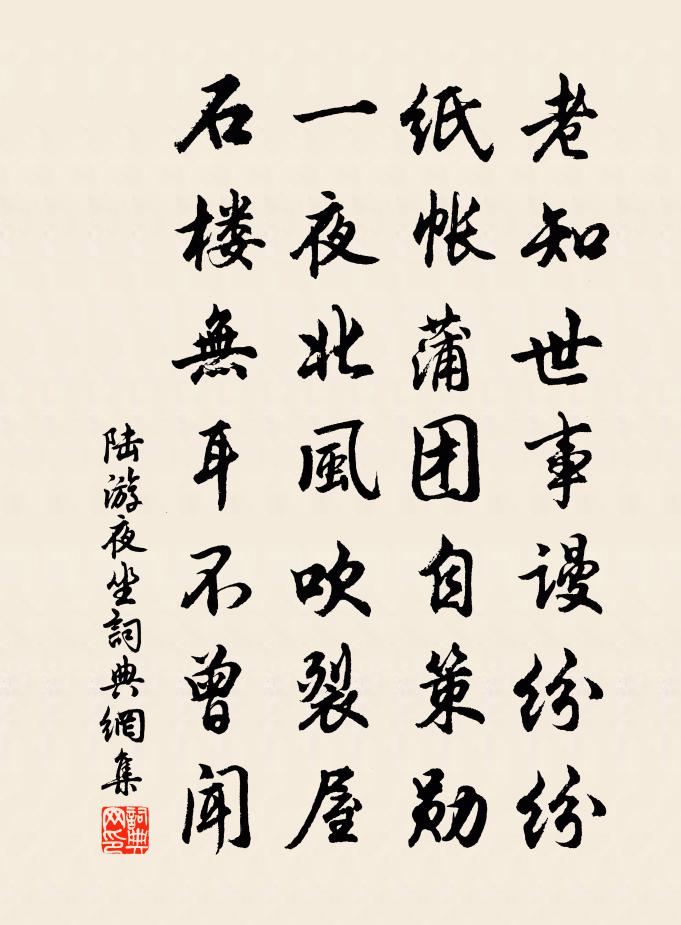 老知世事谩纷纷
纸帐蒲团自策勋
一夜北風吹裂屋
石楼無耳不曾闻
陆游夜坐詞典網集
詞典网印